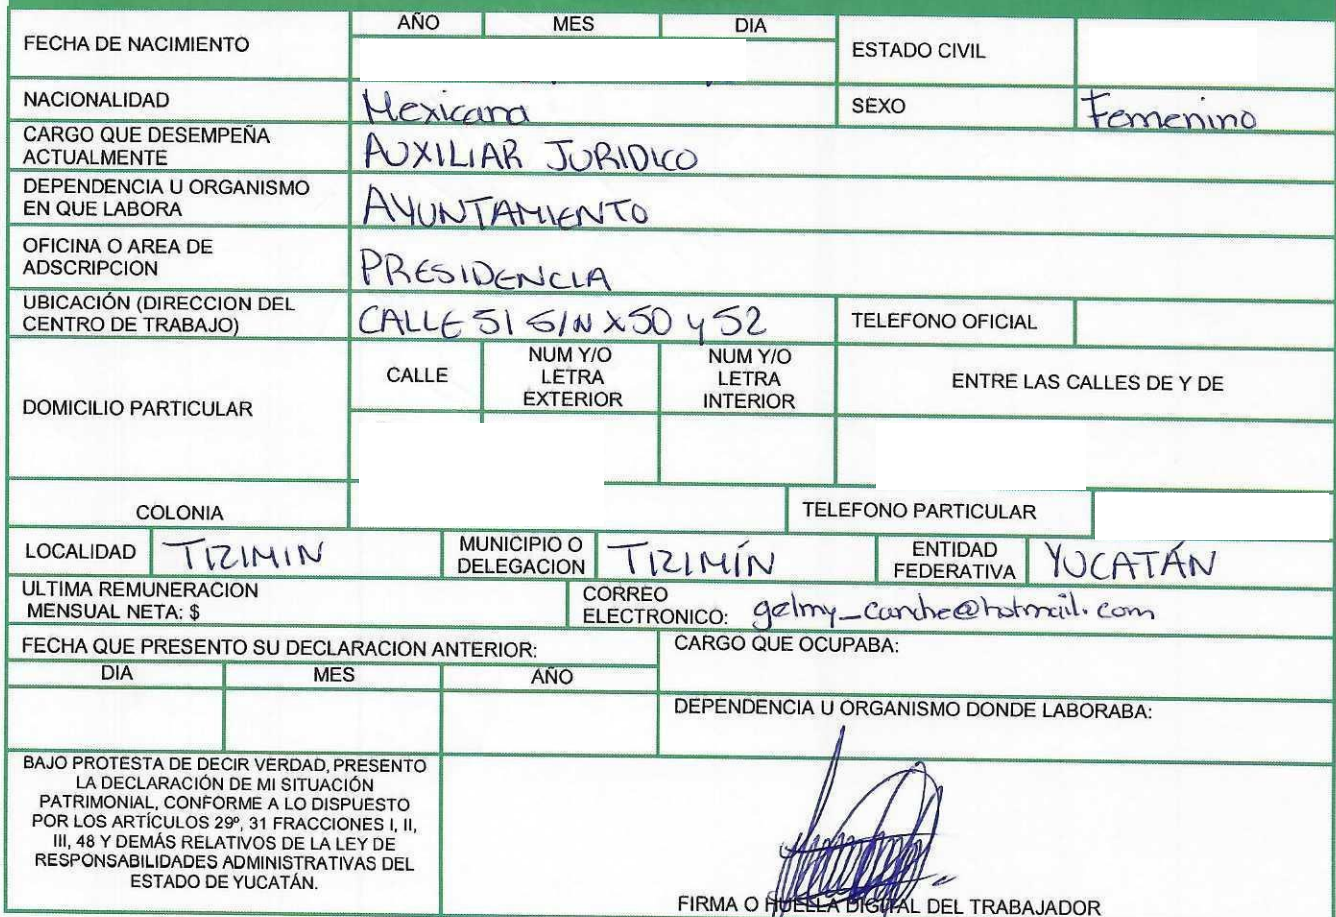 AÑO MES DIA
FECHA DE NACIMIENTO ESTADO CIVIL
NACIONALIDAD Mexicana SEXO Femenino
CARGO QUE DESEMPEÑA
ACTUALMENTE AUXILIAR JURIDICO
DEPENDENCIA U ORGANISMO
EN QUE LABORA AYUNTAMIENTO
OFICINA O AREA DE
ADSCRIPCION PRESIDENCIA
UBICACIÓN (DIRECCION DEL
CENTRO DE TRABAJO) CALLE 51 S/N X50 y 52 TELEFONO OFICIAL
DOMICILIO PARTICULAR
CALLE
NUM Y/O
LETRA
EXTERIOR
NUM Y/O
LETRA
INTERIOR
ENTRE LAS CALLES DE Y DE
COLONIA TELEFONO PARTICULAR
LOCALIDAD TIZIMIN
MUNICIPIO O
DELEGACION TIZIMÍN
ENTIDAD
FEDERATIVA YUCATÁN
ULTIMA REMUNERACION
MENSUAL NETA: $
CORREO
ELECTRONICO: gelmy_canche@hotmail.com
FECHA QUE PRESENTO SU DECLARACION ANTERIOR:
DIA MES AÑO
CARGO QUE OCUPABA:
DEPENDENCIA U ORGANISMO DONDE LABORABA:
BAJO PROTESTA DE DECIR VERDAD, PRESENTO
LA DECLARACIÓN DE MI SITUACIÓN
PATRIMONIAL, CONFORME A LO DISPUESTO
POR LOS ARTÍCULOS 29º, 31 FRACCIONES I, II,
III, 48 Y DEMÁS RELATIVOS DE LA LEY DE
RESPONSABILIDADES ADMINISTRATIVAS DEL
ESTADO DE YUCATÁN.
FIRMA O HUELLA DIGITAL DEL TRABAJADOR